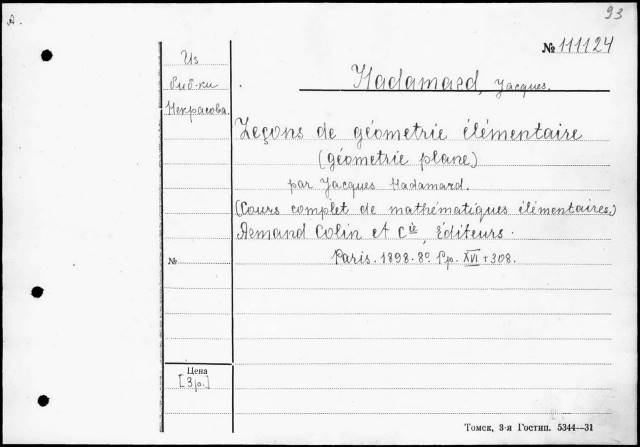 93
А.
№ 111124
Из
биб-ки
Некрасова.
Hadamard, Jacques.
Leçons de géometrie élémentaire
(géometrie plane)
par Jacques Hadamard.
(Cours complet de mathématiques élémentaires.)
Armand Colin et Cie, Éditeurs.
Paris. 1898. 8º. Pp. XVI + 308.
№
Цена
[3р.]
Томск, 3-я Гостип. 5344—31